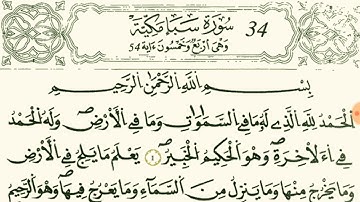 سُورَةُ سَبَأٍ مَكِّيَّةٌ 34
وَهْيَ أَرْبَعٌ وَخَمْسُونَ ءَايَةً 54
بِسْمِ اللَّهِ الرَّحْمَٰنِ الرَّحِيمِ
اَلْحَمْدُ لِلهِ الَّذِے لَهُۥ مَا فِے السَّمَٰوَٰتِ وَمَا فِے الْأَرْضِ وَلَهُ الْحَمْدُ
فِے اِ۬لَاخِرَةِ وَهُوَ الْحَكِيمُ الْخَبِيرُ ١ يَعْلَمُ مَا يَلِجُ فِے الْأَرْضِ
وَمَا يَخْرُجُ مِنْهَا وَمَا يَنزِلُ مِنَ السَّمَآءِ وَمَا يَعْرُجُ فِيهَا وَهُوَ الرَّحِيمُ